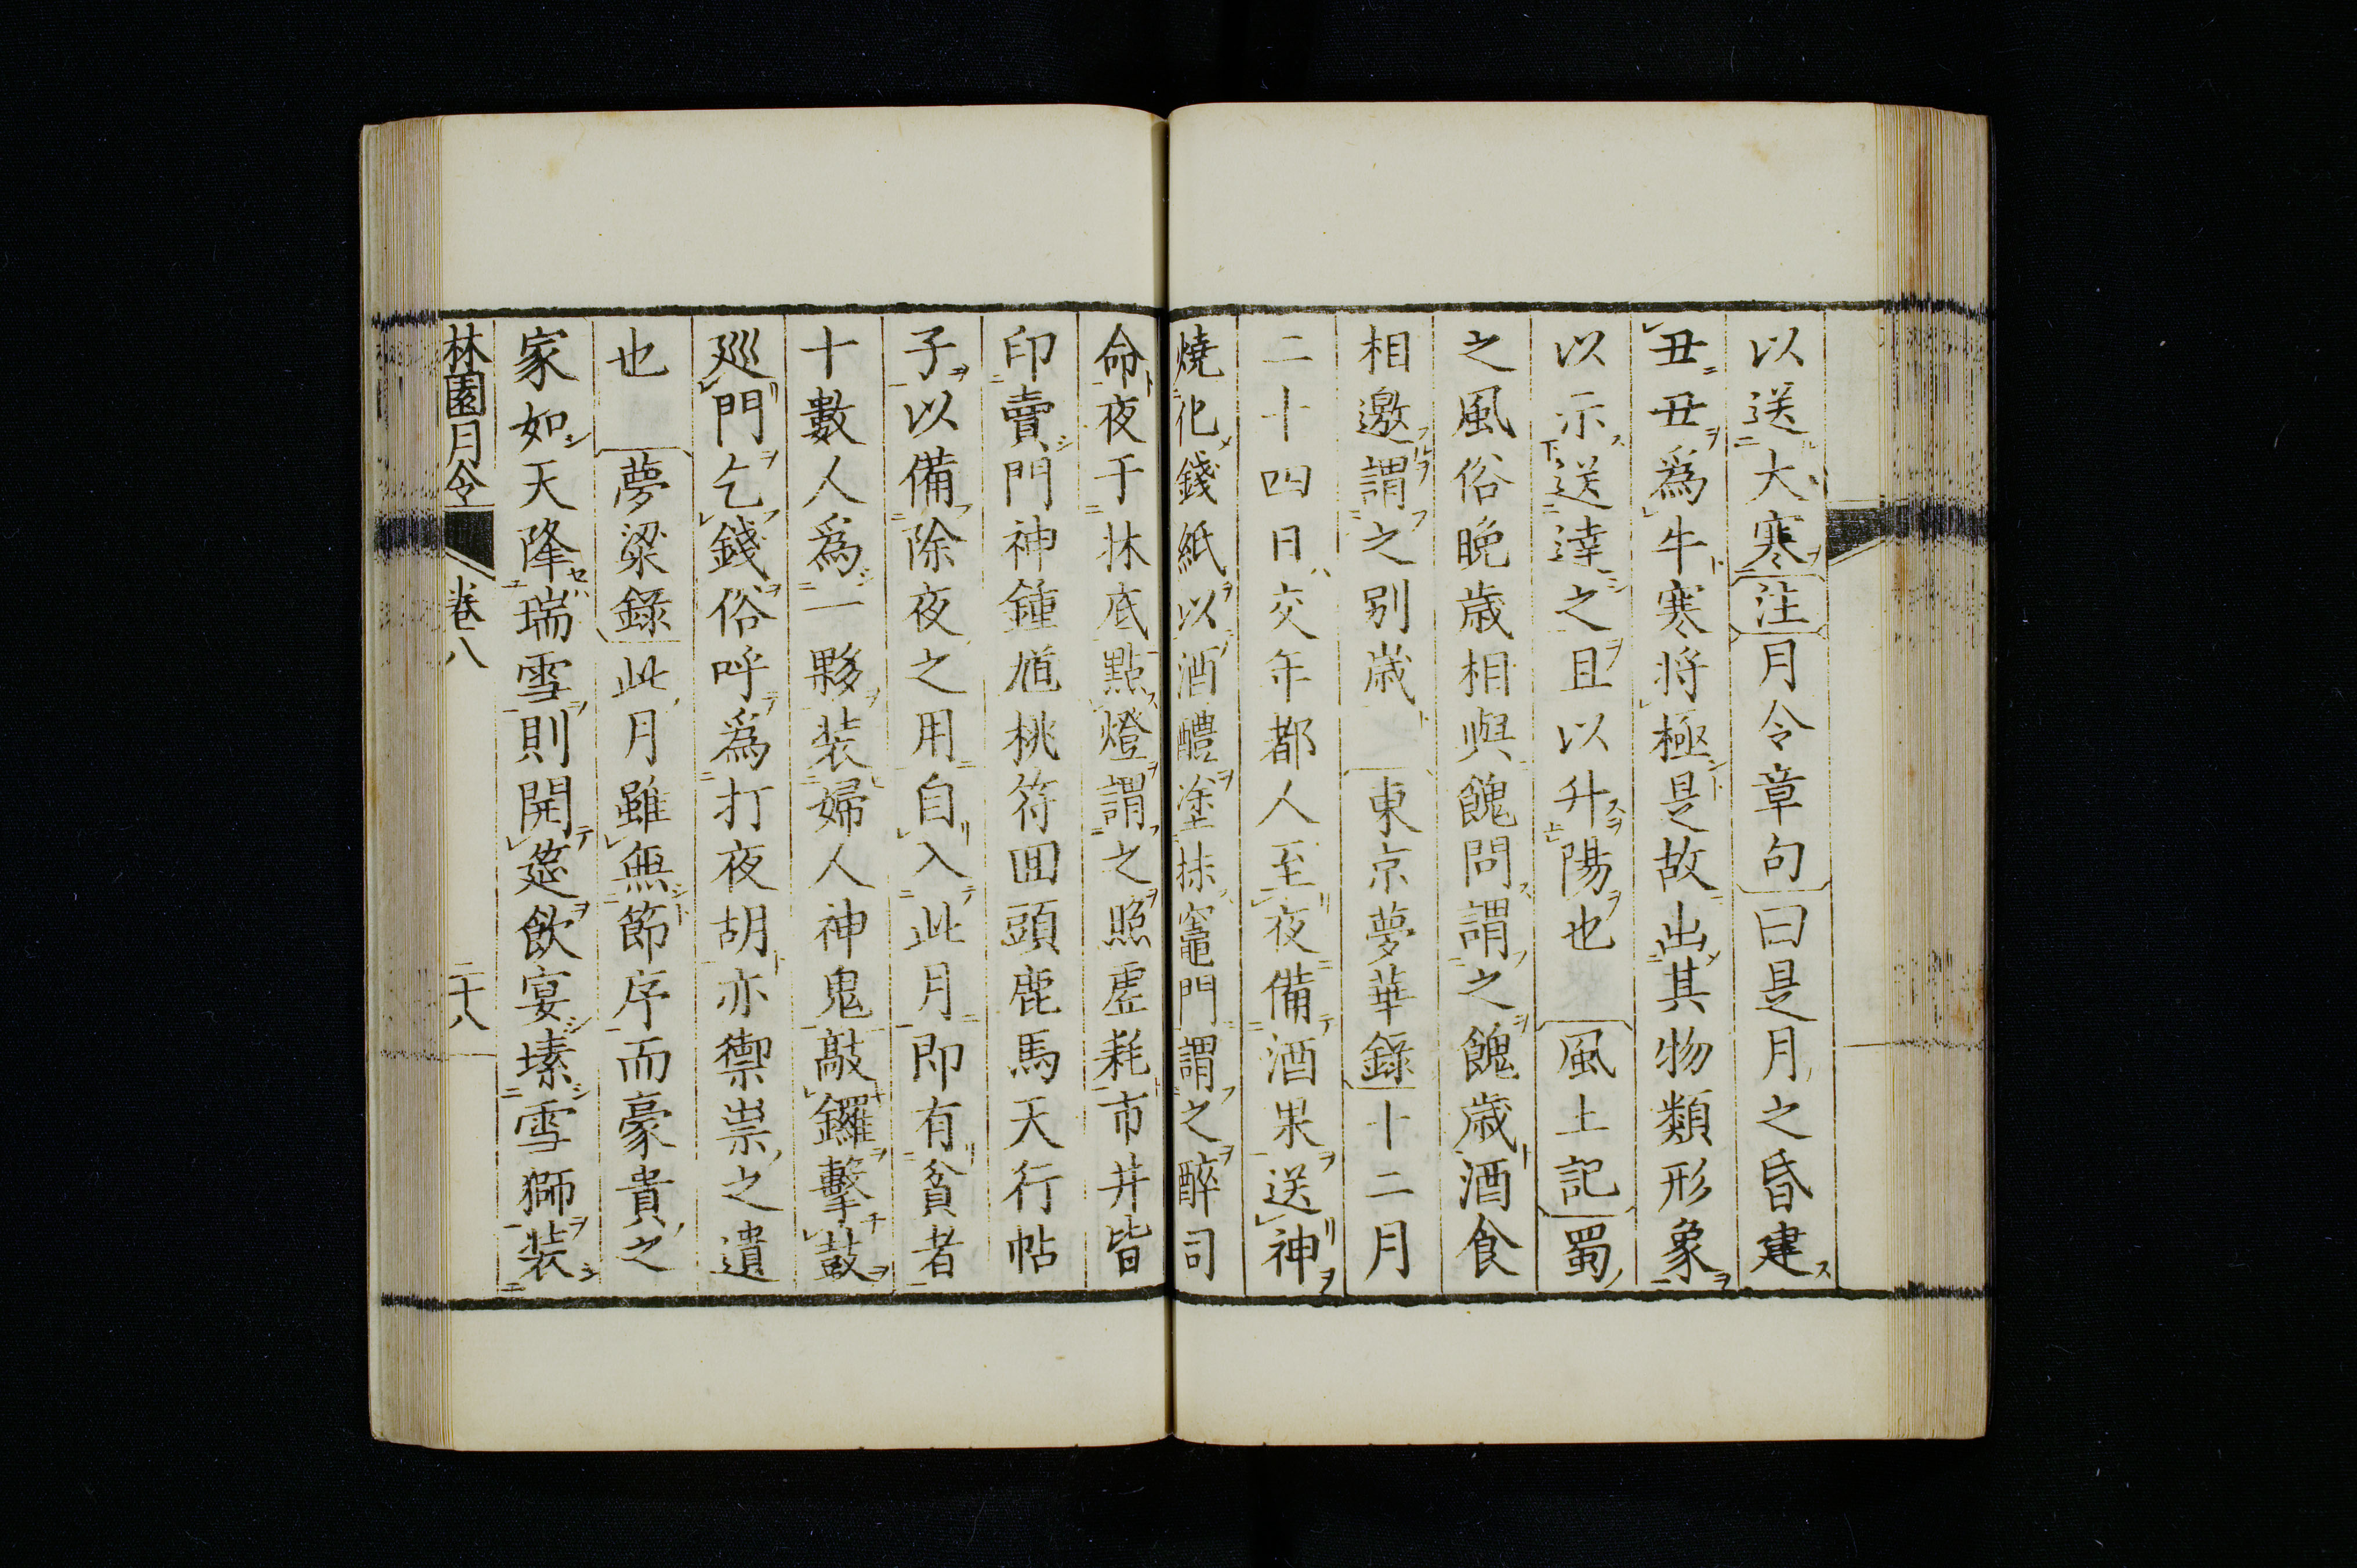 以送大寒注月令章句曰是月之昏建
丑丑爲牛寒将極是故出其物類形象
以示送達之且以升陽也風土記蜀
之風俗晩歳相與餽問謂之餽歳酒食
相邀謂之别歳東京夢華錄十二月
二十四日交年都人至夜備酒果送神
燒化錢紙以酒醴塗抹竈門謂之醉司
命夜于牀底點燈謂之照虛耗市井皆
印賣門神鍾馗桃符囬頭鹿馬天行帖
子以備除夜之用自入此月即有貧者
十數人爲一夥装婦人神鬼敲鑼擊鼓
廵門乞錢俗呼爲打夜胡亦禦祟之遺
也夢粱錄此月雖無節序而豪貴之
家如天降瑞雪則開筵飲宴塐雪獅装
林園月令 卷八 二十八